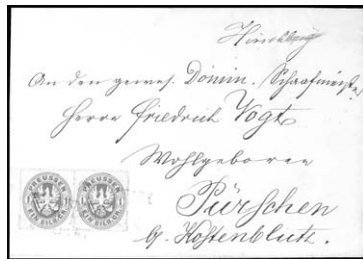 Hirschberg
An den gewes. Dómin. Schaafmeister
Herrn Friedrich Vogt
Wohlgeboren
Pürschen
b/ Kostenblut.
PREUSSEN
EIN SILB.GR.
PREUSSEN
EIN SILB.GR.